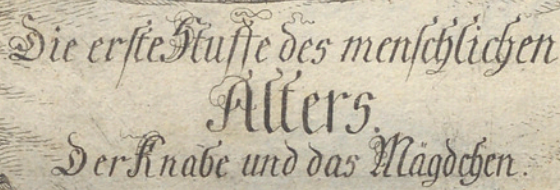 Die erste Stuffe des menschlichen
Alters.
Der Knabe und das Mägdchen.